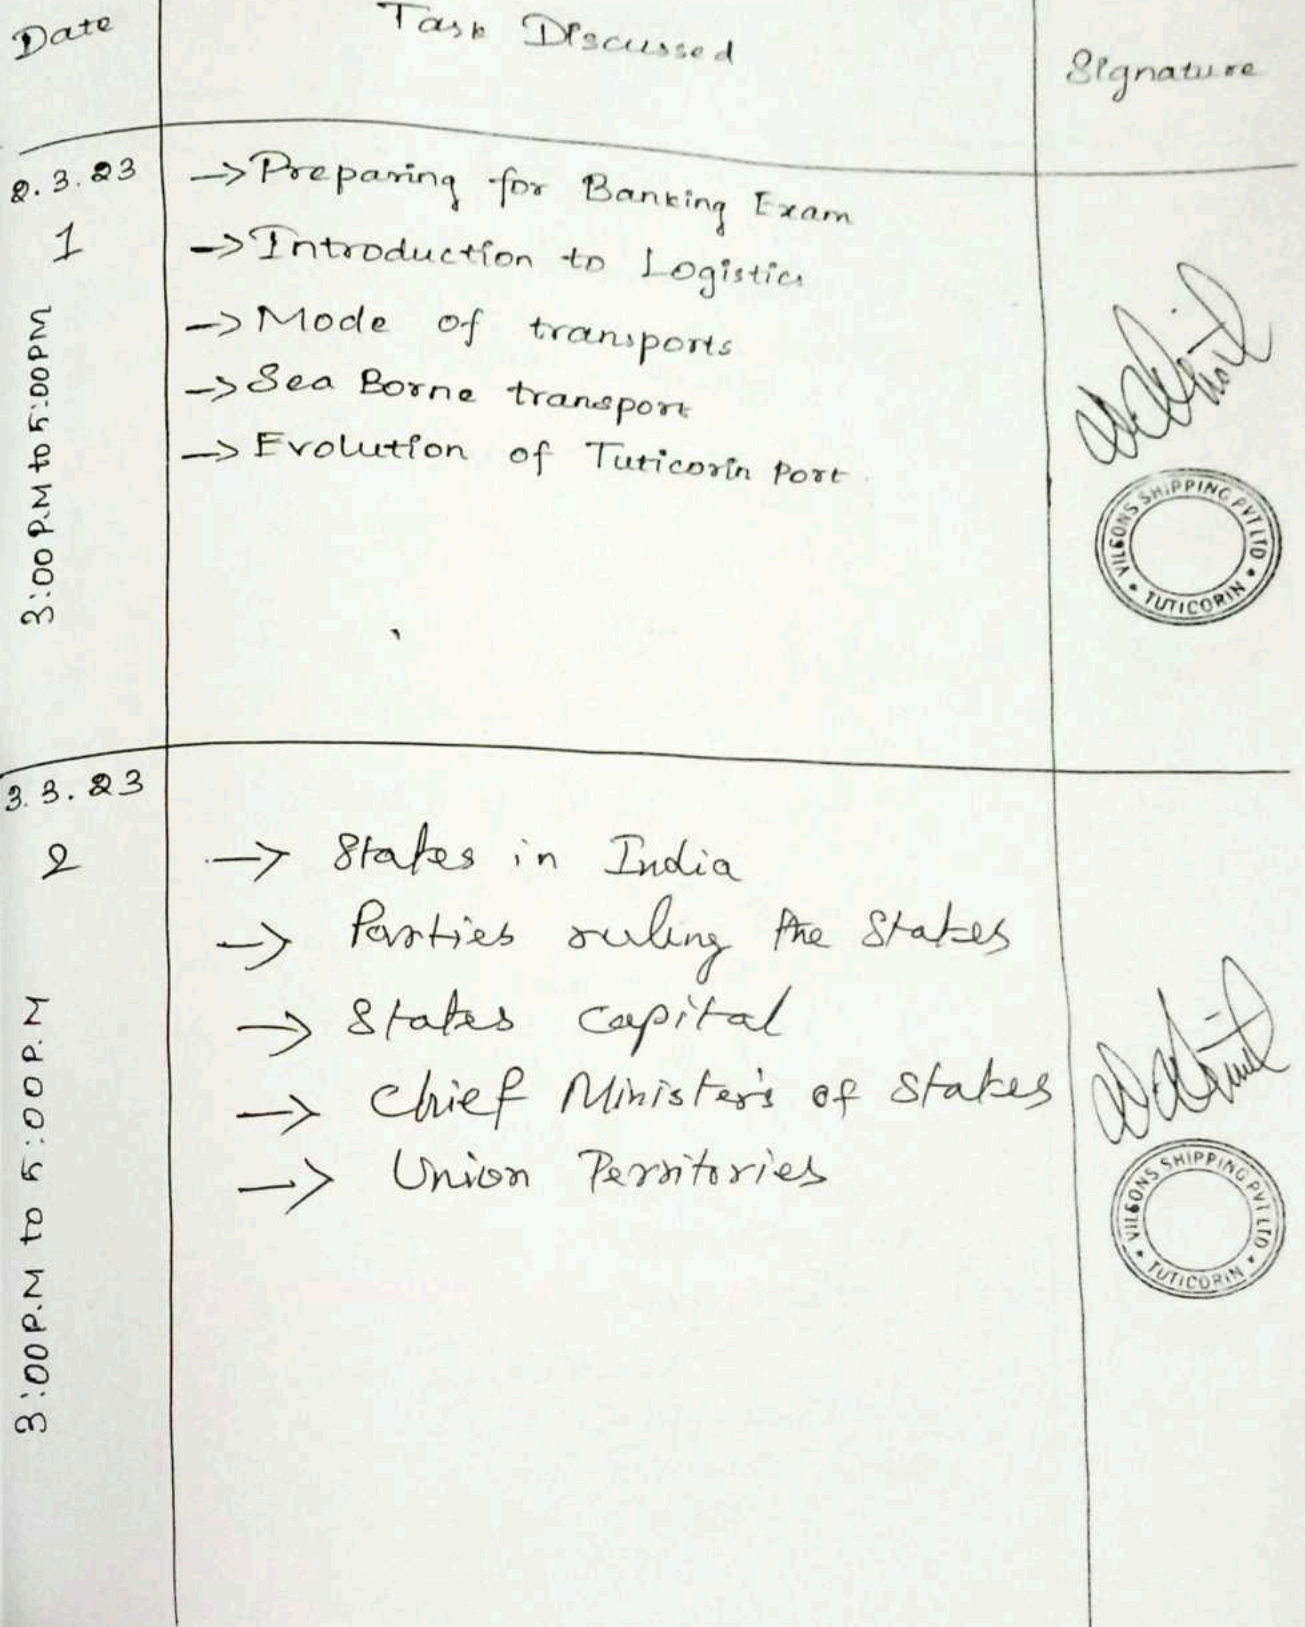 Date Task Discussed Signature
2.3.23
1
3:00 P.M to 5:00 PM
-> Preparing for Banking Exam
-> Introduction to Logistics
-> Mode of transports
-> Sea Borne transport
-> Evolution of Tuticorin Port
VILSONS SHIPPING PVT LTD
TUTICORIN
3.3.23
2
3:00 P.M to 5:00 P.M
-> States in India
-> Parties ruling the States
-> States capital
-> Chief Minister's of States
-> Union Territories
VILSONS SHIPPING PVT LTD
TUTICORIN